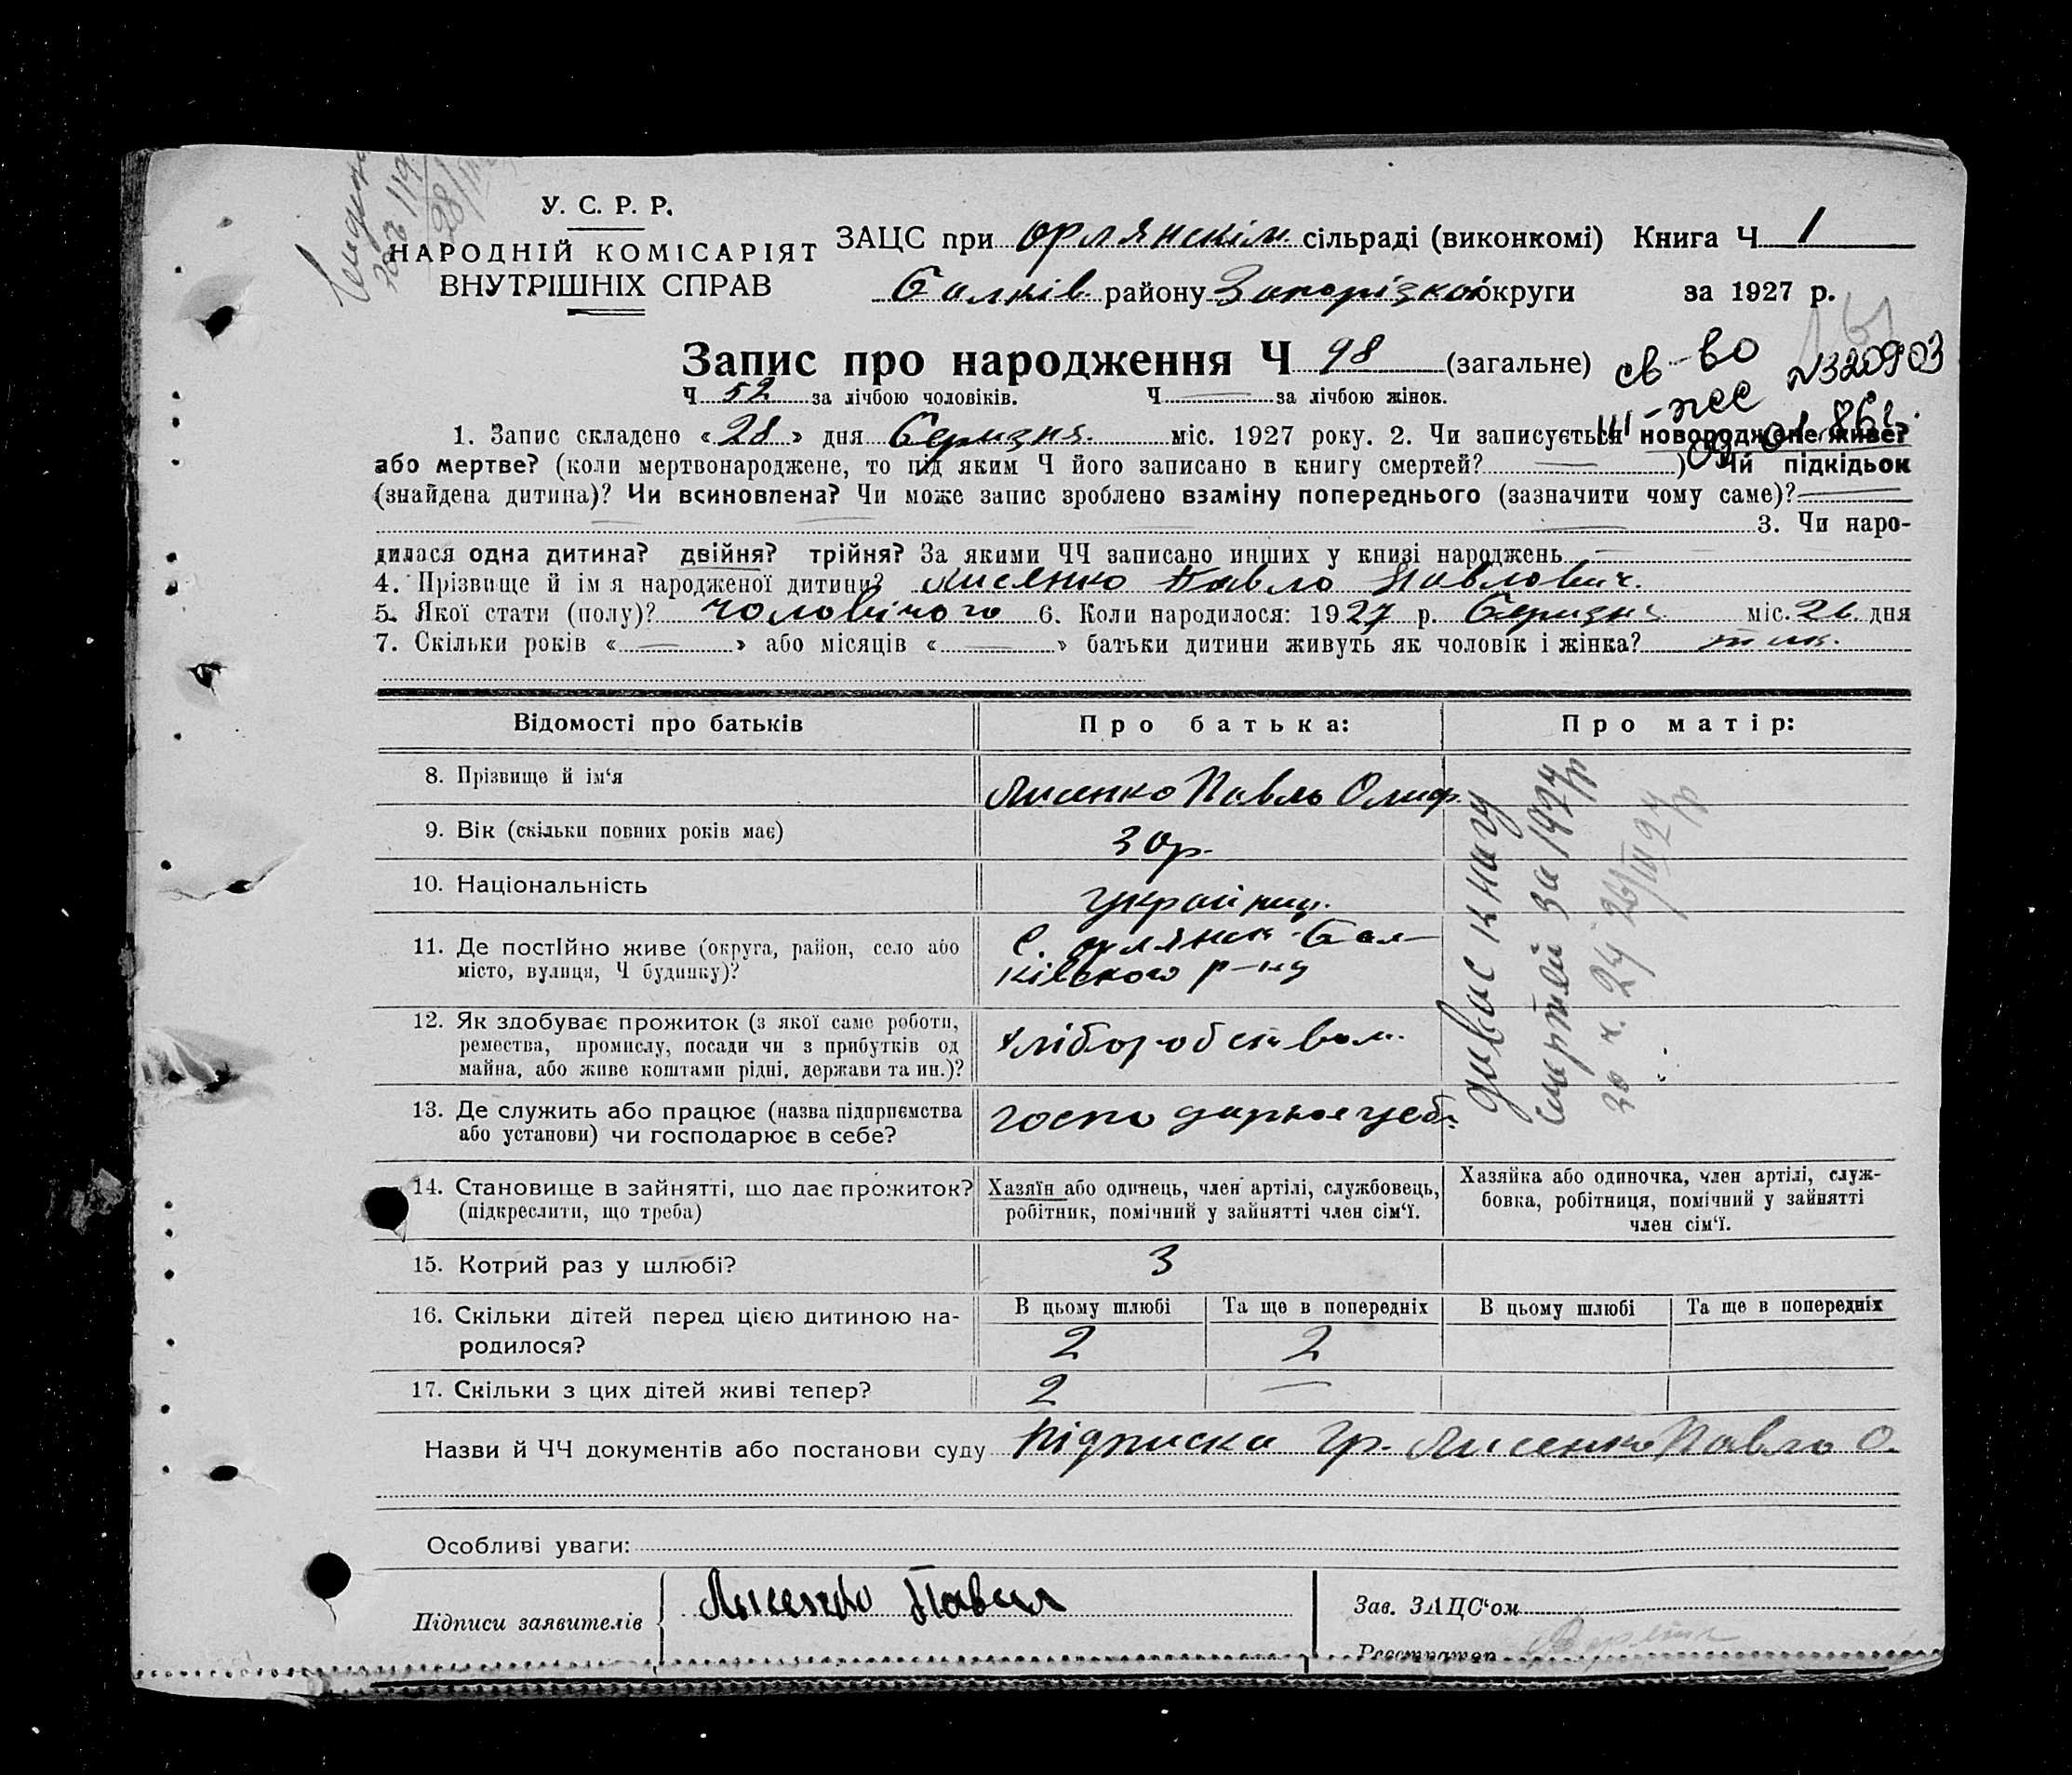 У. С. Р. Р.
НАРОДНІЙ КОМІСАРІЯТ
ВНУТРІШНІХ СПРАВ
ЗАЦС при Орлянскім сільраді (виконкомі) Книга Ч 1
Балків району Запорізкой округи за 1927 р.
Запис про народження Ч 98 (загальне)
св-во №320903
III-ЖС
Ч 52 за лічбою чоловіків. Ч — за лічбою жінок.
1. Запис складено «28» дня Березня міс. 1927 року. 2. Чи записується новороджене живе?
або мертве? (коли мертвонароджене, то під яким Ч його записано в книгу смертей? —) Чи підкідьок
(знайдена дитина)? Чи всиновлена? Чи може запис зроблено взаміну попереднього (зазначити чому саме)? —
3. Чи наро-
дилася одна дитина? двійня? трійня? За якими ЧЧ записано инших у книзі народжень —
4. Прізвище й ім я народженої дитини? Лисенко Павло Павлович.
5. Якої стати (полу)? чоловічого 6. Коли народилося: 1927 р. Березня міс. 26 дня
7. Скільки років «—» або місяців «—» батьки дитини живуть як чоловік і жінка?
Відомості про батьків Про батька: Про матір:
8. Прізвище й ім‘я Лисенко Павло Олиф.
9. Вік (скільки повних років має) 30р.
10. Національність українц.
11. Де постійно живе (округа, район, село або С. Орлянск Бал-
місто, вулиця, Ч будинку)? ківского р-ну
12. Як здобуває прожиток (з якої саме роботи,
ремества, промислу, посади чи з прибутків од
майна, або живе коштами рідні, держави та ин.)? хліборобством.
13. Де служить або працює (назва підприємства
або установи) чи господарює в себе? господарює у себе
дивис книгу
смертей за 1927 р
14. Становище в зайнятті, що дає прожиток?
(підкреслити, що треба)
Хазяїн або одинець, член артілі, службовець,
робітник, помічний у зайнятті член сім‘ї.
Хазяйка або одиночка, член артілі, служ-
бовка, робітниця, помічний у зайнятті
член сім‘ї.
15. Котрий раз у шлюбі? 3
16. Скільки дітей перед цією дитиною на-
родилося?
В цьому шлюбі Та ще в попередніх В цьому шлюбі Та ще в попередніх
2 2
17. Скільки з цих дітей живі тепер? 2 —
Назви й ЧЧ документів або постанови суду підписка гр. Лисенко Павло О.
Особливі уваги:
Підписи заявителів Лисенко Павил
Зав. ЗАЦС‘ом
Реєстратор